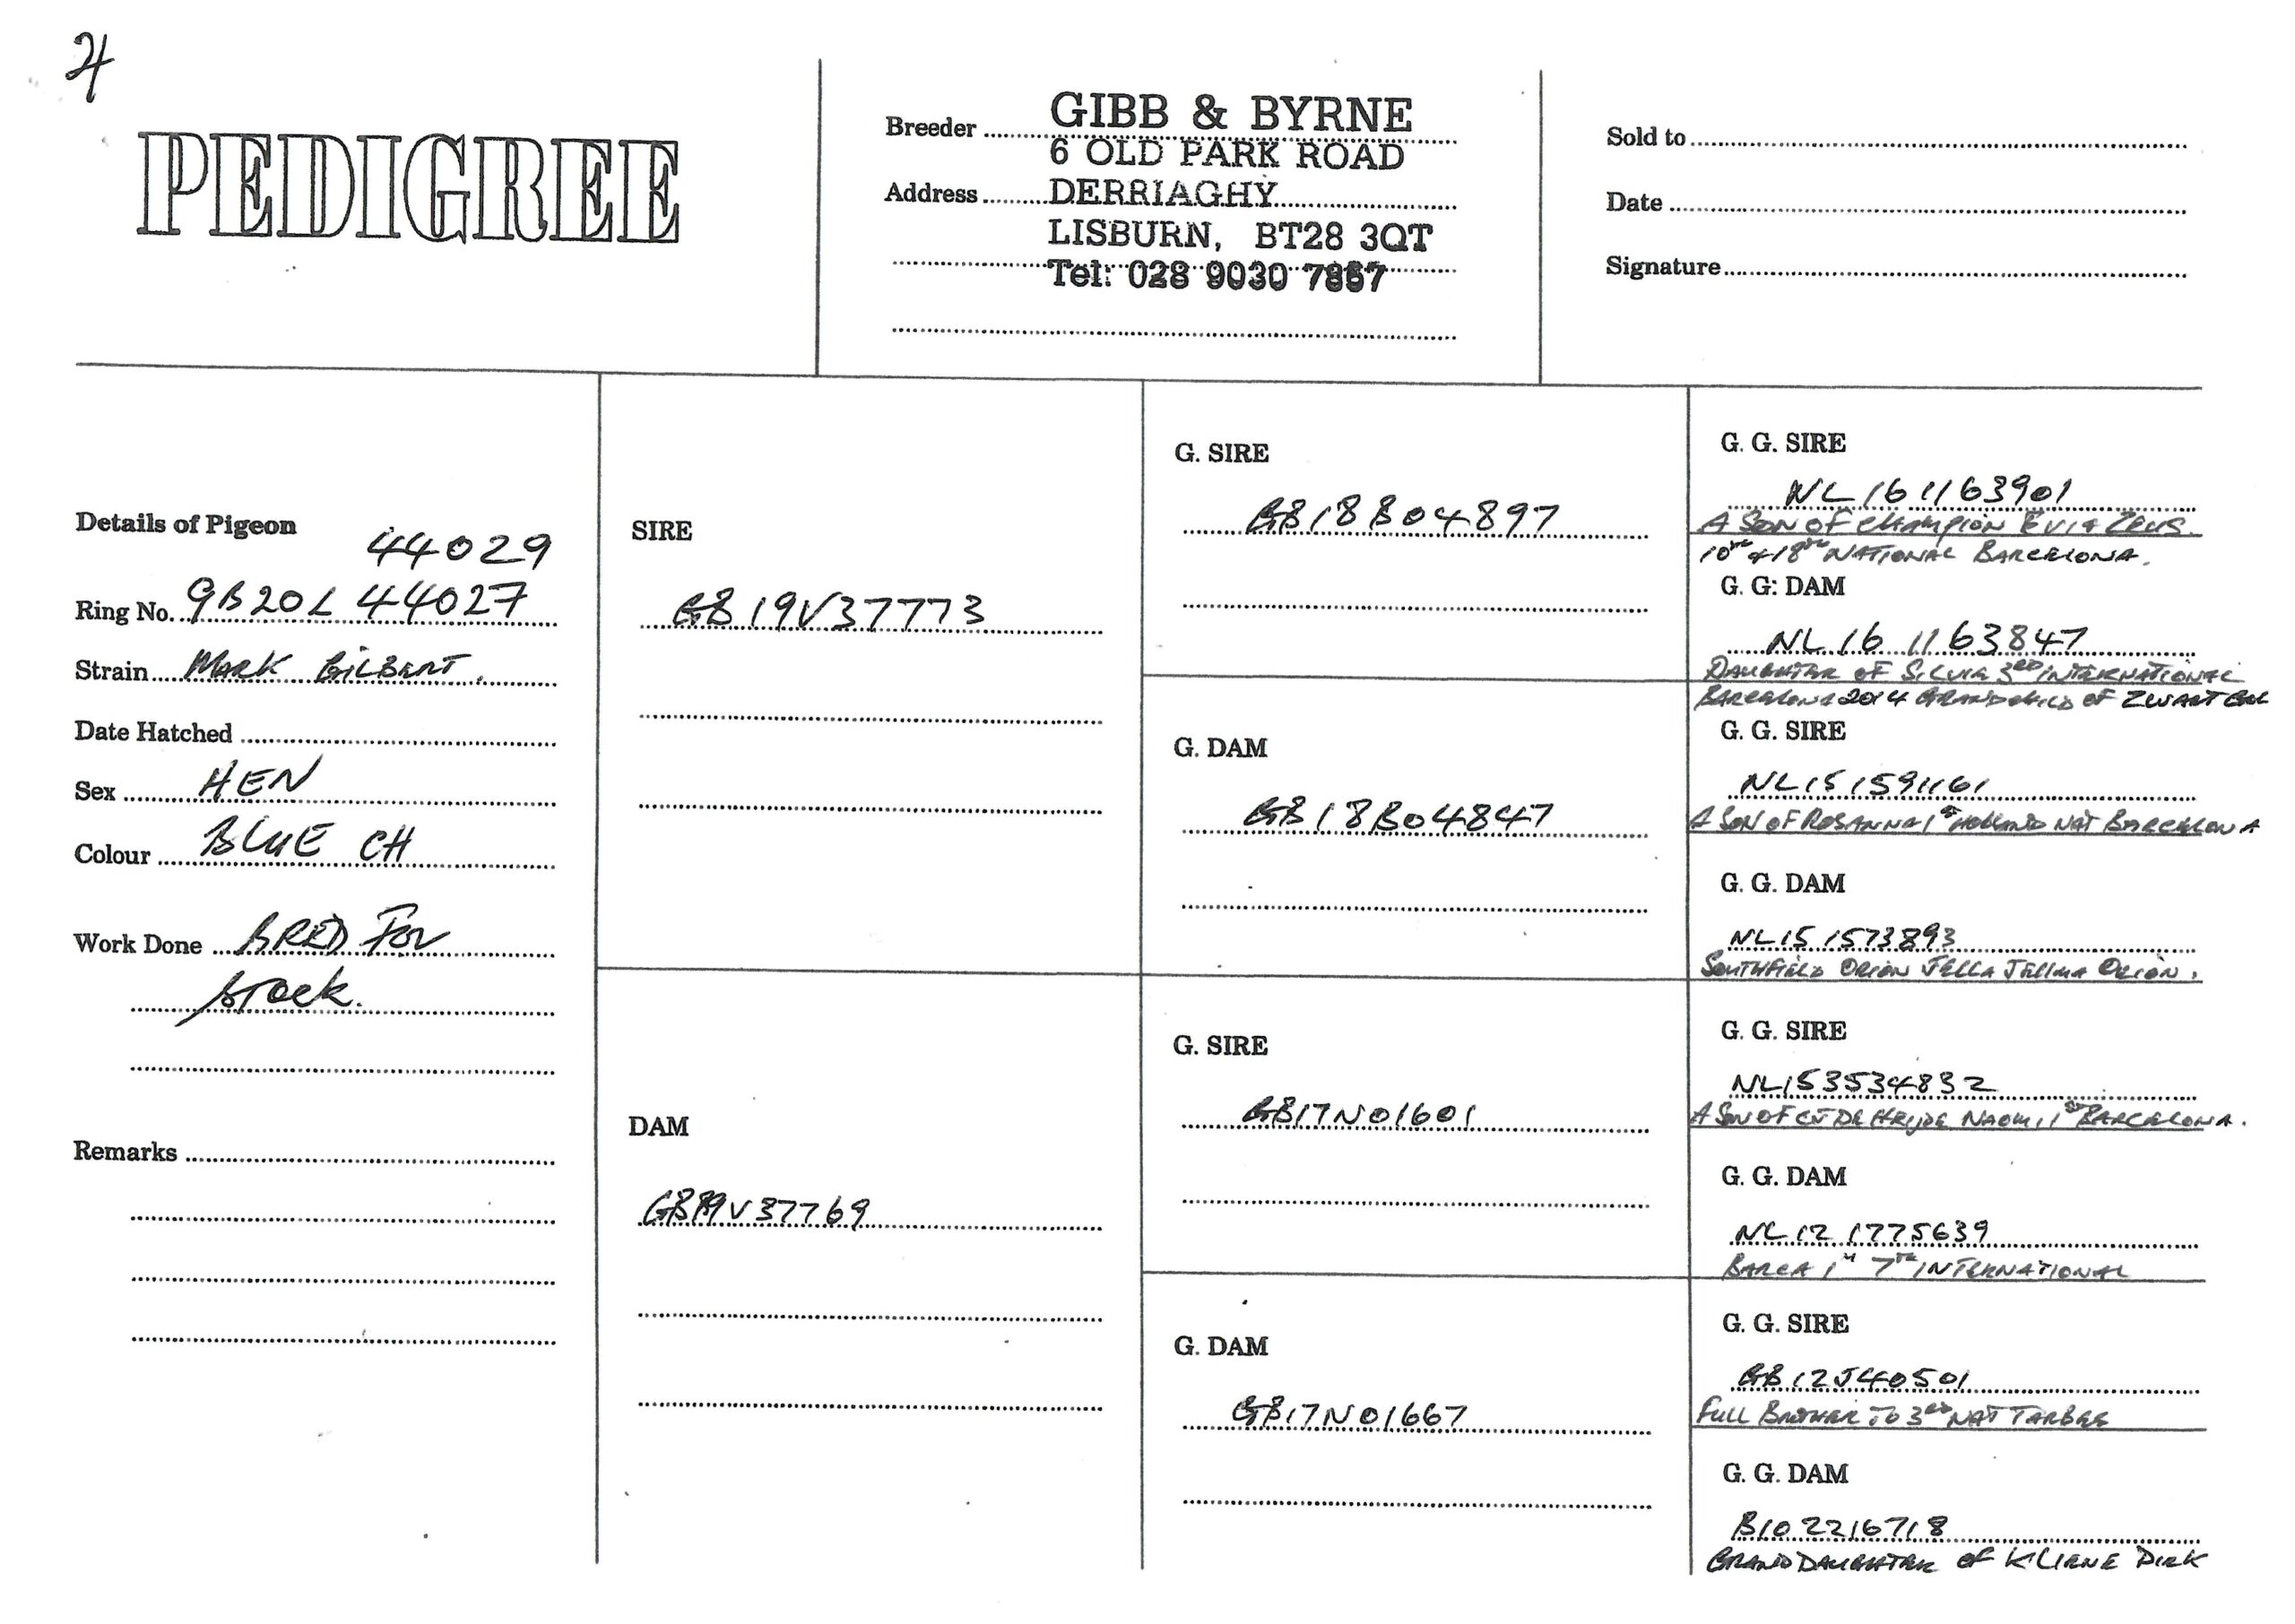 PEDIGREE
Breeder GIBB & BYRNE
6 OLD PARK ROAD
Address DERRIAGHY
LISBURN, BT28 3QT
Tel: 028 9030
Sold to
Date
Signature
Details of Pigeon
44029
Ring No. GB20L 44027
Strain MARK GILBERT.
Date Hatched
Sex HEN
Colour BLUE CH
Work Done BRED FOR
STOCK.
Remarks
SIRE
GB19V37773
DAM
GB19V37769
G. SIRE
GB18B04897
G. DAM
GB18B04847
G. SIRE
GB17N01601
G. DAM
GB17N01667
G. G. SIRE
NL161163901
A SON OF CHAMPION EVIA ZEUS.
10TH & 18TH NATIONAL BARCELONA.
G. G: DAM
NL16 1163847
DAUGHTER OF SILVIA 3RD INTERNATIONAL
BARCELONA 2014 GRANDCHILD OF ZWART
G. G. SIRE
NL151591161
A SON OF ROSANNA 1ST HOLLAND NAT BARCELONA
G. G. DAM
NL15 1573893
SOUTHFIELD ORION JELLA JELLMA ORION.
G. G. SIRE
NL153534832
A SON OF NAOMI 1ST BARCELONA.
G. G. DAM
NL12 1775639
BARCA 7TH INTERNATIONAL
G. G. SIRE
GB12J40501
FULL BROTHER TO 3RD NAT TARBES
G. G. DAM
B10 2216718
GRAND DAUGHTER OF KLIENE DIRK